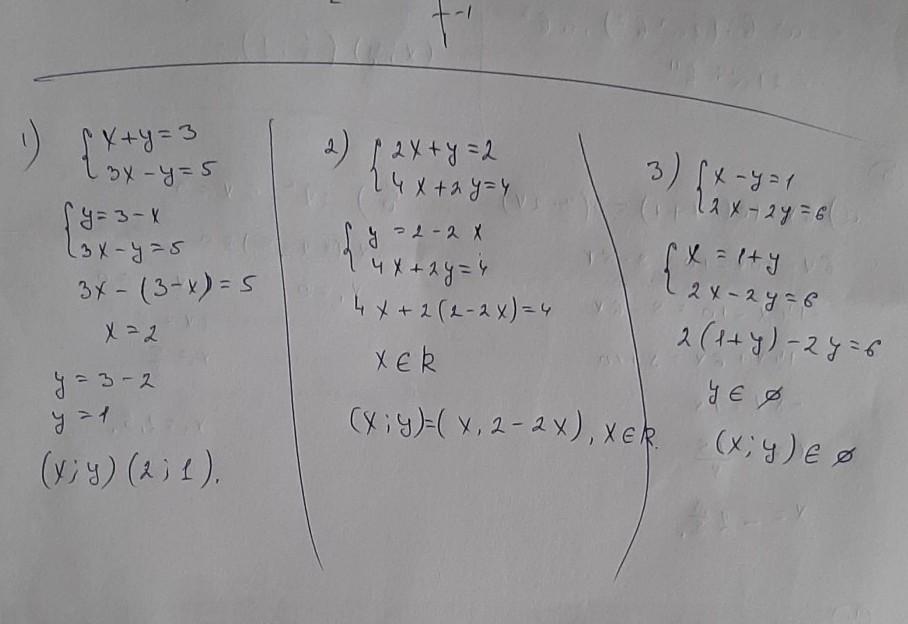 -1
1) { x+y=3
3x-y=5
{ y=3-x
3x-y=5
3x-(3-x)=5
x=2
y=3-2
y=1
(x;y)(2;1).
2) { 2x+y=2
4x+2y=4
{ y=2-2x
4x+2y=4
4x+2(2-2x)=4
x∈R
(x;y)=(x,2-2x), x∈R.
3) { x-y=1
2x-2y=6
{ x=1+y
2x-2y=6
2(1+y)-2y=6
y∈ø
(x;y)∈ø